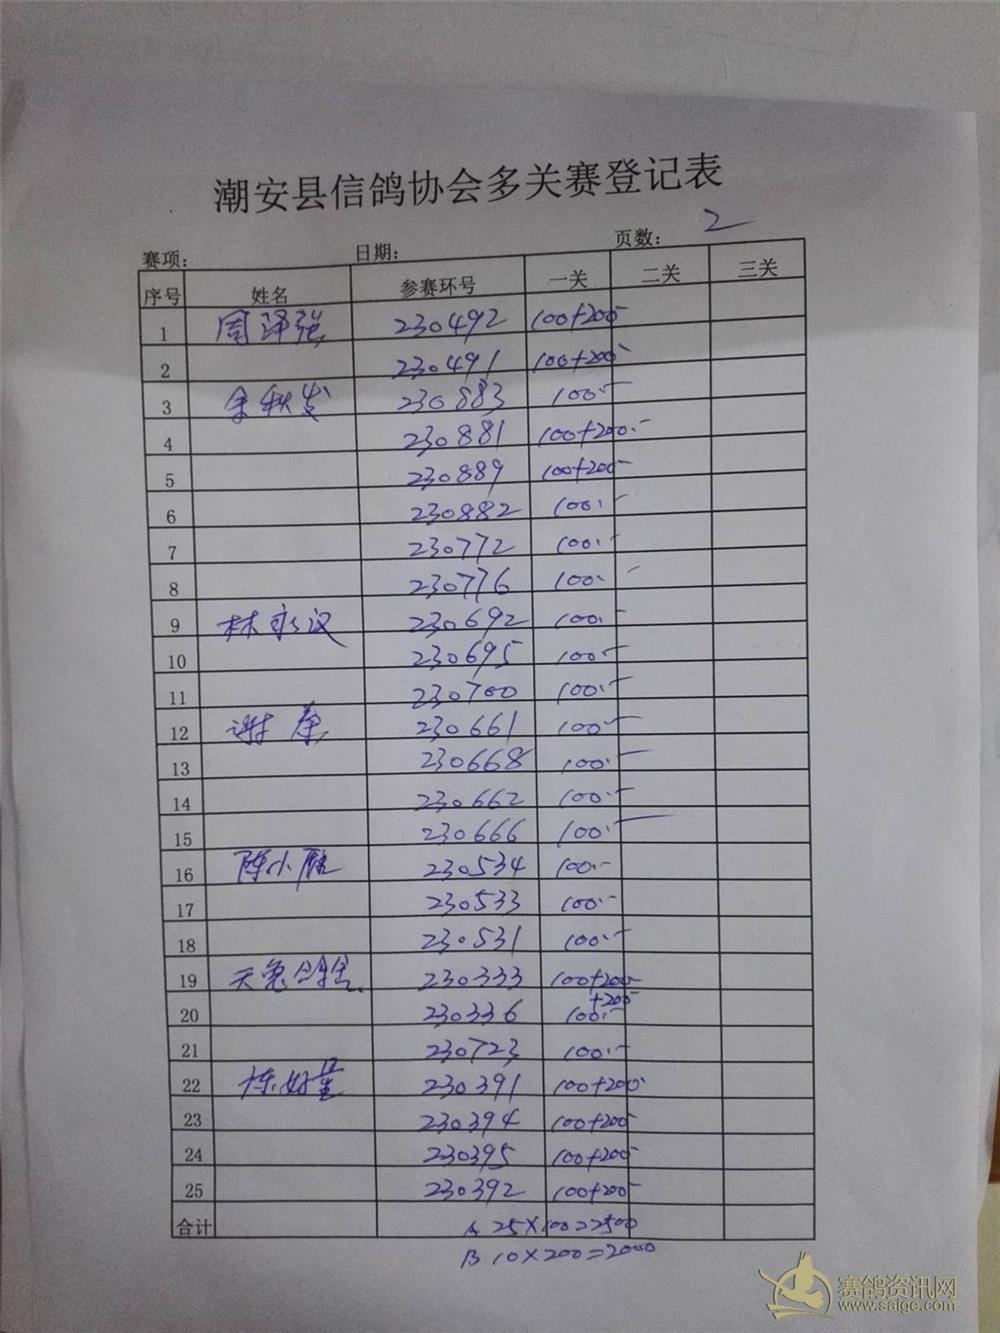 潮安县信鸽协会多关赛登记表
赛项： 日期： 页数： 2
序号 姓名 参赛环号 一关 二关 三关
1 周泽强 230492 100+200-
2 230491 100+200-
3 余秋发 230883 100.-
4 230881 100+200.-
5 230889 100+200-
6 230882 100.-
7 230772 100.-
8 230776 100.-
9 林永汉 230692 100.-
10 230695 100.-
11 230700 100.-
12 谢春 230661 100.-
13 230668 100.-
14 230662 100.-
15 230666 100.-
16 陈小 230534 100.-
17 230533 100.-
18 230531 100.-
19 天兔鸽舍 230333 100+200-
20 230336 100.- +200-
21 230723 100.-
22 230391 100+200.
23 230394 100+200-
24 230395 100+200-
25 230392 100+200-
合计 A 25×100=2500
B 10×200=2000
赛鸽资讯网
www.saige.com